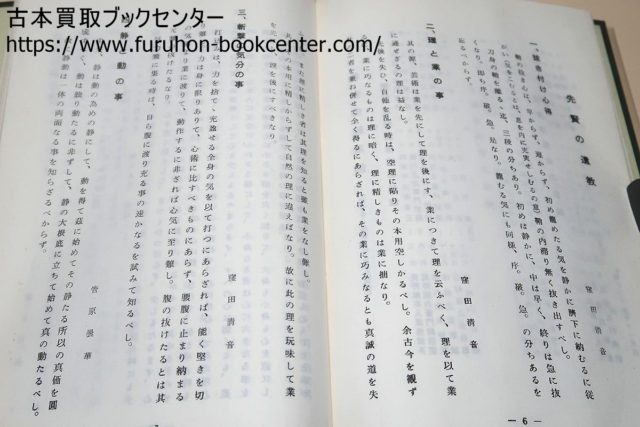 古本買取ブックセンター
https://www.furuhon-bookcenter.com/
先賢の遺教
一、抜き付け心得
窪田清音
刀の抜き心は、早からず、遅からず、初め籠めたる気を静かに臍下に納むるに従
がい（気をこむるとは、意を内に充実せしむるの意）鞘の内滞り無く抜き出すべし。
刀身の鞘を離るゝ迄、三段の分ちあり。初めは静かに、中は早く、終りは急に抜
くなり。即ち序。破。急。是なり。籠むる気にも同様、序。破。急。の分ちあるを
忘るべからず。
二、理と業の事
窪田清音
其の源、芸術は業を先にして理を後にす、業につきて理を云ふべく、理を以て業
に通ぜざるの理は益なし。
先後を失ひ、自他を乱る時は、空理に陥りその本用空しかるべし。余古今を観ず
るに、業に巧みなるものは理に暗く、理に精しきものは業に拙なり。
二者を兼ね併せて全く得るにあらざれば、その業に巧みなるとも真誠の道を失
— 6 —
い、また理に精しき者は其理を知ると雖も業をなし難し。
其の本用に精しからずして自然の理に違えばなり。故に此の理を玩味して業
を先にし、理を後にすべきなり。
三、斬撃の気分の事
窪田清音
打込みは、力を捨て、充溢せる全身の気を以て打つにあらざれば、能く堅きを切
り難し。力は身に限りありて、心術に比すべきものにあらず、腰腹に止まり納まる
気の業に渡りて、動作するに非ざれば心気に至り難し。腹の抜けたるとは其
の気の抜けたるなり。
業に臨る時は、自ら腹に渡り充る事の速かなるを試みて知るべし。
動の事
菅原長華
静は動の為めの静にして、動を得て茲に始めてその静たる所以の真価を闡
く、動は独り動たるに非ずして、静の大根底に立ちて始めて真の動たるべし。
静動は一体の両面なる事を知らざるべからず。